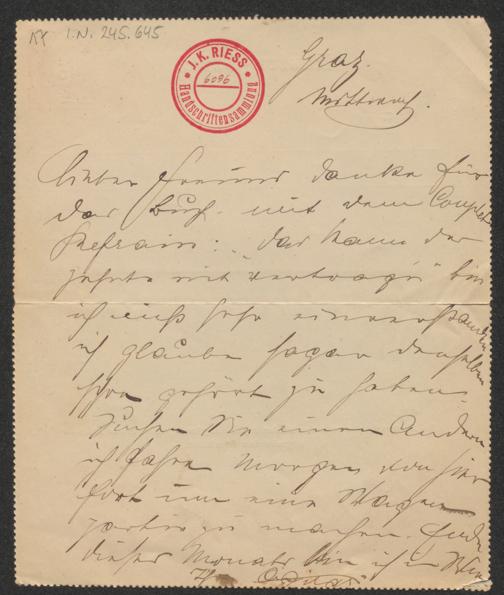 I.N. 245.645
J. K. RIESS
6096
Handschriftensammlung
Graz.
Mittwoch.
Lieber Freund danke für
das Buch mit dem Couplet
Refrain: "das kann der
zehnte nit vertragn" bin
ich nicht sehr einverstanden
ich glaube sogar denselben
schon gehört zu haben.
Suchen Sie einen Andern
ich fahre Morgen von hier
fort um eine Wagen
partie zu machen. Ende
dieses Monats bin ich in Wien